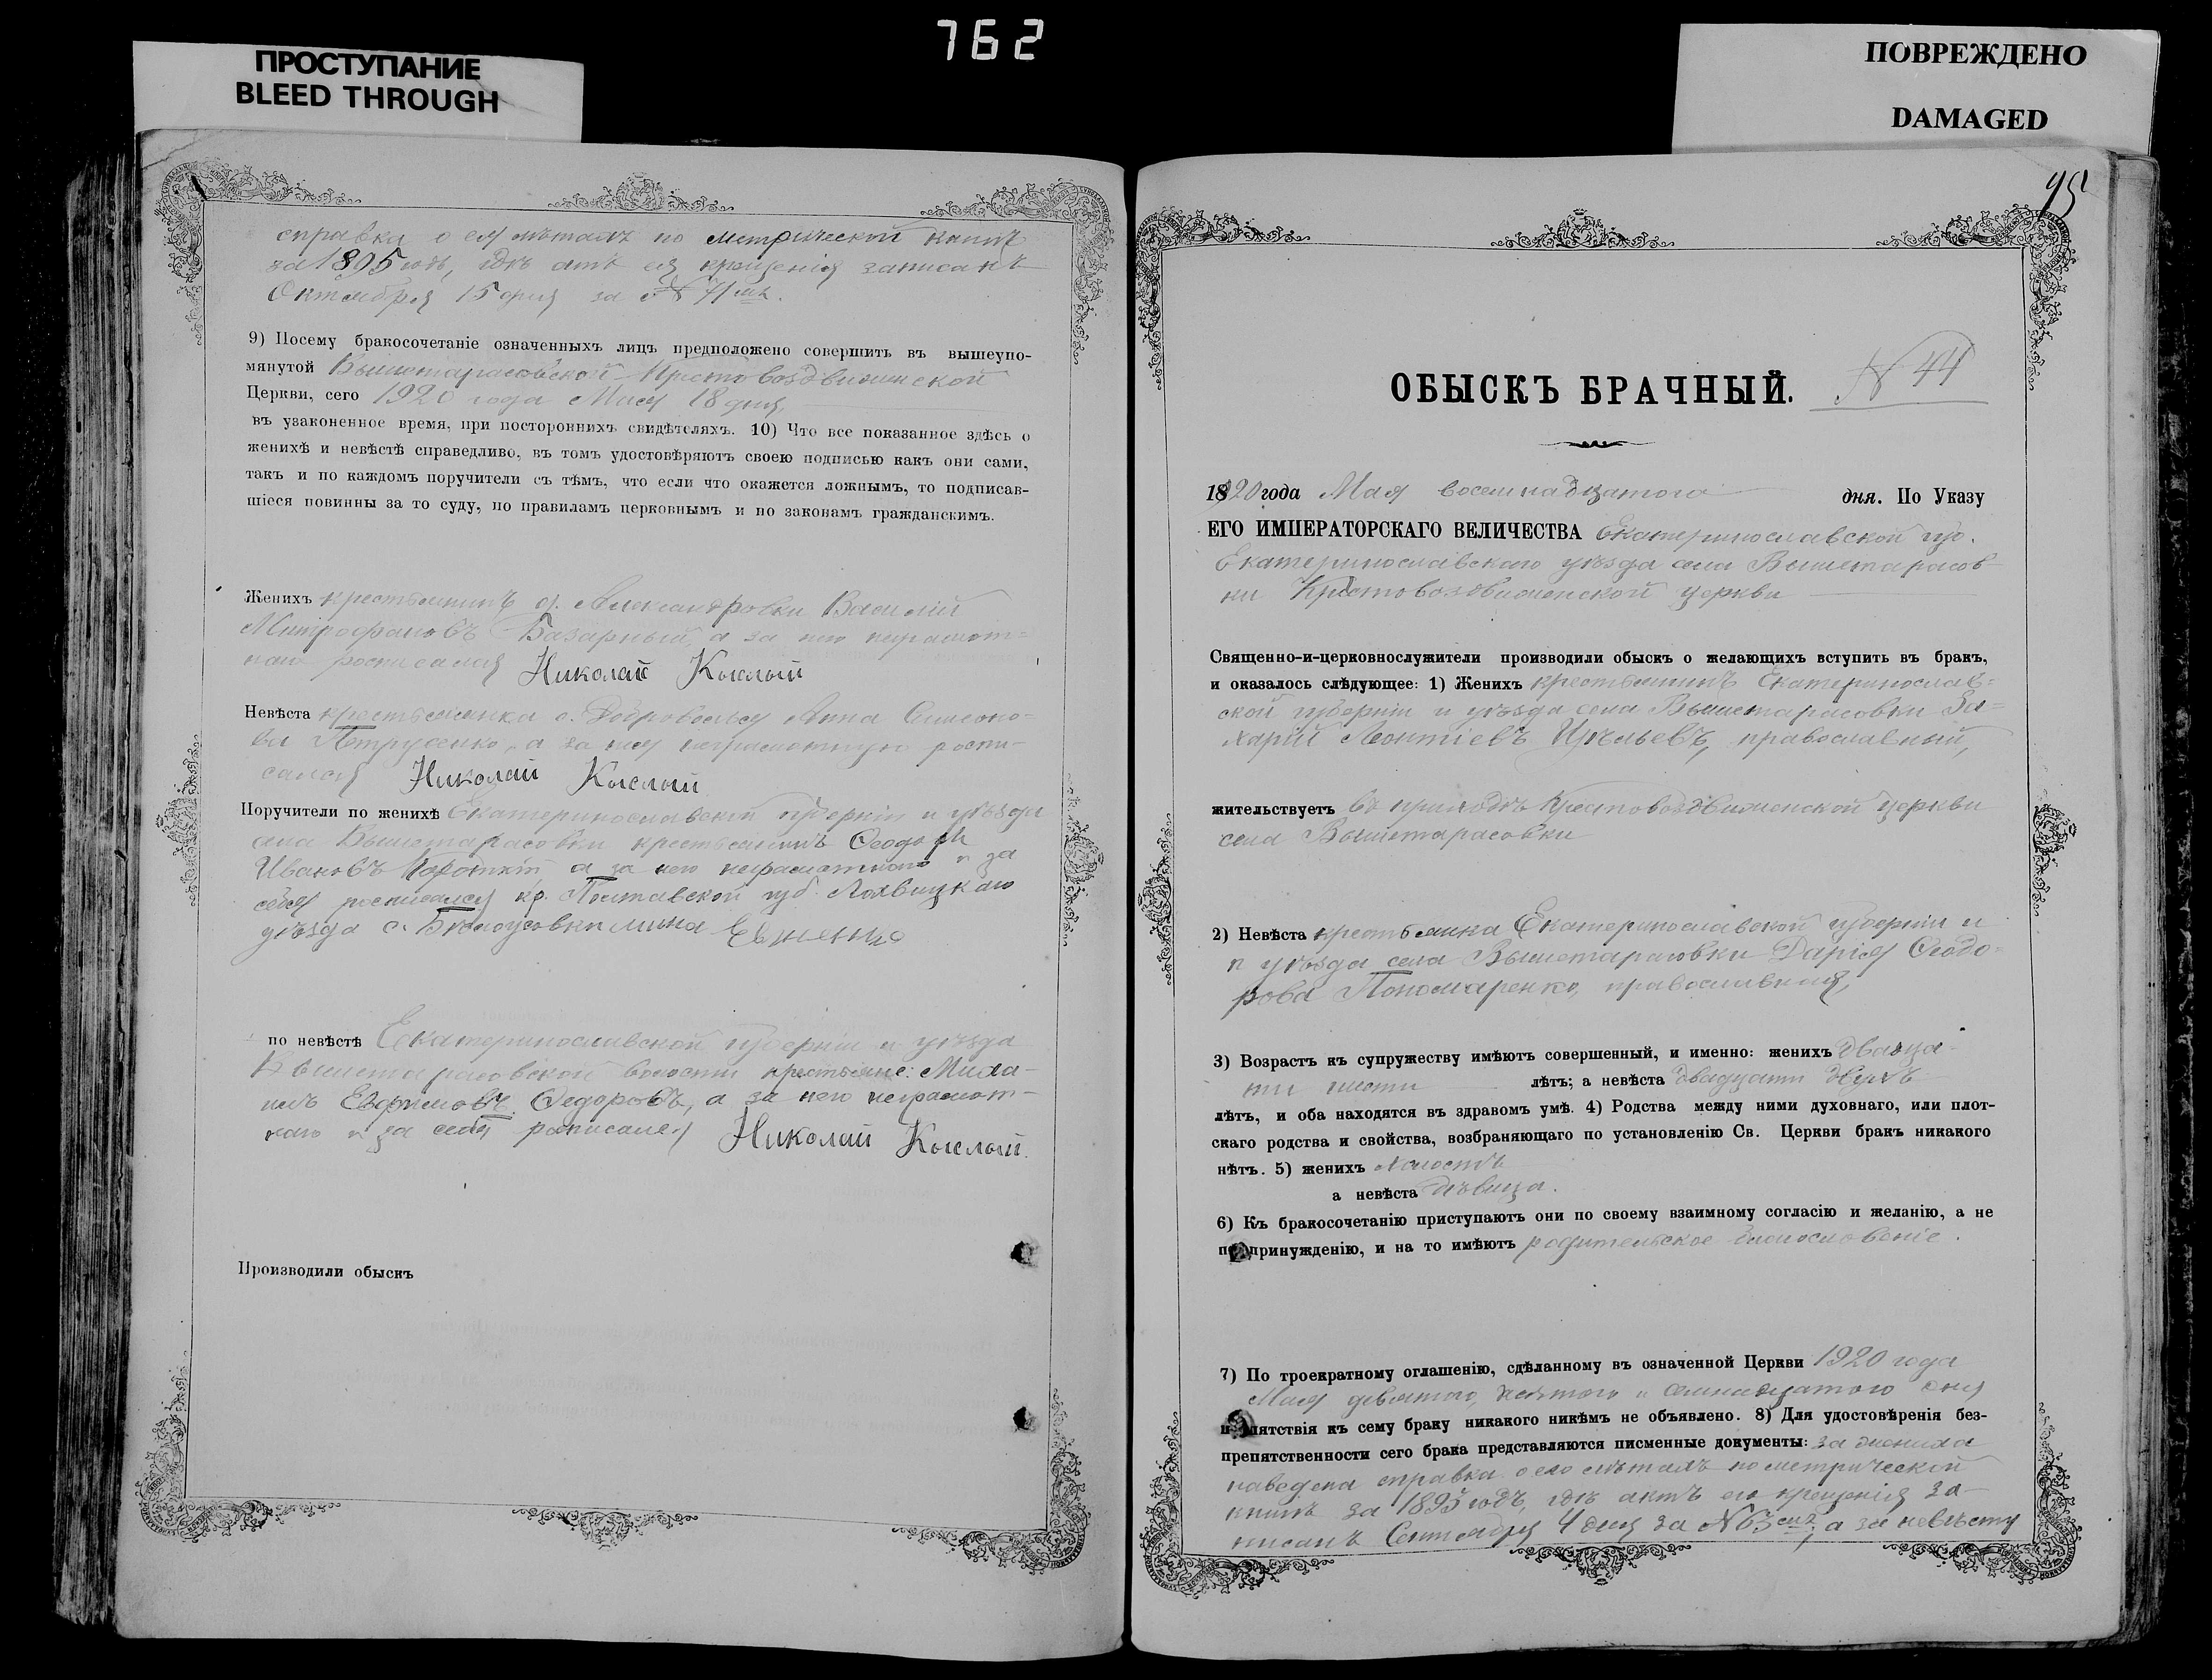 762
ПРОСТУПАНИЕ
BLEED THROUGH
ПОВРЕЖДЕНО
DAMAGED
справка о ея лѣтахъ по метрической книгѣ
за 1895 годъ, гдѣ актъ ея крещенія записанъ
Октября 15 дня за № 71мъ.
9) Посему бракосочетаніе означенныхъ лицъ предположено совершить въ вышеупо-
мянутой Вышетарасовской Крестовоздвиженской
Церкви, сего 1920 года Мая 18 дня,
въ узаконенное время, при постороннихъ свидѣтеляхъ. 10) Что все показанное здѣсь о
женихѣ и невѣстѣ справедливо, въ томъ удостовѣряютъ своею подписью какъ они сами,
такъ и по каждомъ поручители съ тѣмъ, что если что окажется ложнымъ, то подписав-
шіеся повинны за то суду, по правиламъ церковнымъ и по законамъ гражданскимъ.
Женихъ крестьянинъ д. Александровки Василій
Митрофановъ Базарный а за него неграмот-
наго росписался Николай Кыслый
Невѣста крестьянка с. Анна Симоно-
ва Петрусенко, а за нея неграмотную роспи-
сался Николай Кыслый
Поручители по женихѣ Екатеринославской губерніи и уѣзда
села Вышетарасовки крестьянинъ Ѳеодоръ
Ивановъ а за него неграмотного и за
себя росписался кр. Полтавской губ. Лохвицкаго
уѣзда с. Бѣлоусовки
по невѣстѣ Екатеринославской губерніи и уѣзда
Вышетарасовской волости крестьяне: Миха-
илъ Евфимовъ Ѳедоровъ, а за него неграмот-
наго и за себя росписался Николай Кыслый.
Производили обыскъ
95
ОБЫСКЪ БРАЧНЫЙ. № 44
1920 года Мая восемнадцатого дня. По Указу
ЕГО ИМПЕРАТОРСКАГО ВЕЛИЧЕСТВА Екатеринославской губ.
Екатеринославскаго уѣзда села Вышетарасов-
ки Крестовоздвиженской церкви
Священно-и-церковнослужители производили обыскъ о желающихъ вступить въ бракъ,
и оказалось слѣдующее: 1) Женихъ крестьянинъ Екатеринослав-
ской губерніи и уѣзда села Вышетарасовки За-
харій Леонтіевъ православный,
жительствуетъ въ приходѣ Крестовоздвиженской церкви
села Вышетарасовки
2) Невѣста крестьянка Екатеринославской губерніи и
и уѣзда села Вышетарасовки Дарія Ѳеодо-
рова Пономаренко, православная,
3) Возрастъ къ супружеству имѣютъ совершенный, и именно: женихъ двадца-
ти шести лѣтъ; а невѣста двадцати двухъ
лѣтъ, и оба находятся въ здравомъ умѣ. 4) Родства между ними духовнаго, или плот-
скаго родства и свойства, возбраняющаго по установленію Св. Церкви бракъ никакого
нѣтъ. 5) женихъ холостъ
а невѣста дѣвица.
6) Къ бракосочетанію приступаютъ они по своему взаимному согласію и желанію, а не
по принужденію, и на то имѣютъ родительское благословеніе.
7) По троекратному оглашенію, сдѣланному въ означенной Церкви 1920 года
Мая девятого, десятого и семнадцатого дня
препятствія къ сему браку никакого никѣмъ не объявлено. 8) Для удостовѣренія без-
препятственности сего брака представляются писменные документы: за жениха
наведена справка о его лѣтахъ по метрической
книгѣ за 1893 годъ, гдѣ актъ его крещенія за-
писанъ Сентября 4 дня за № а за невѣсту